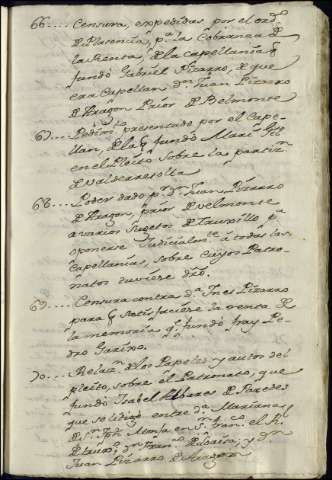 66.... Censura, expedidas por el ord.
de Plasencia, p.a la Cobranza de
la Renta, de la Capellania q
fundó Gabriel Pizarro, de que
era Capellan d.n Juan Pizarro
de Aragon Prior de Belmonte
67.... Pedim.to presentado por el Cape-
llan, de la q fundó Mari
en el Pleito sobre la partiz.n
de Valderresolla
68.... Poder dado p.r d.n Juan Pizarro
de Aragon, prior de Velmonte
a varios sugetos de Truxillo p.a
oponerse Judicialm.te á todas las
Capellanias, sobre cuyos Patro-
natos tuviere dro.
69.... Censura contra d.a Ines Pizarro
para q satisfaciere la renta de
la memoria q.e fundó fray Pe-
dro Garino.
70.... Relaz.n de los Papeles y autos del
pleito, sobre el Patronato, que
fundó Isabel de Paredes
que se litigó entre d.a Mariana
de S.n Monja en S. Fran.co el R.l
de d.n Fran.co de y d.n
Juan Pizarro de Aragon